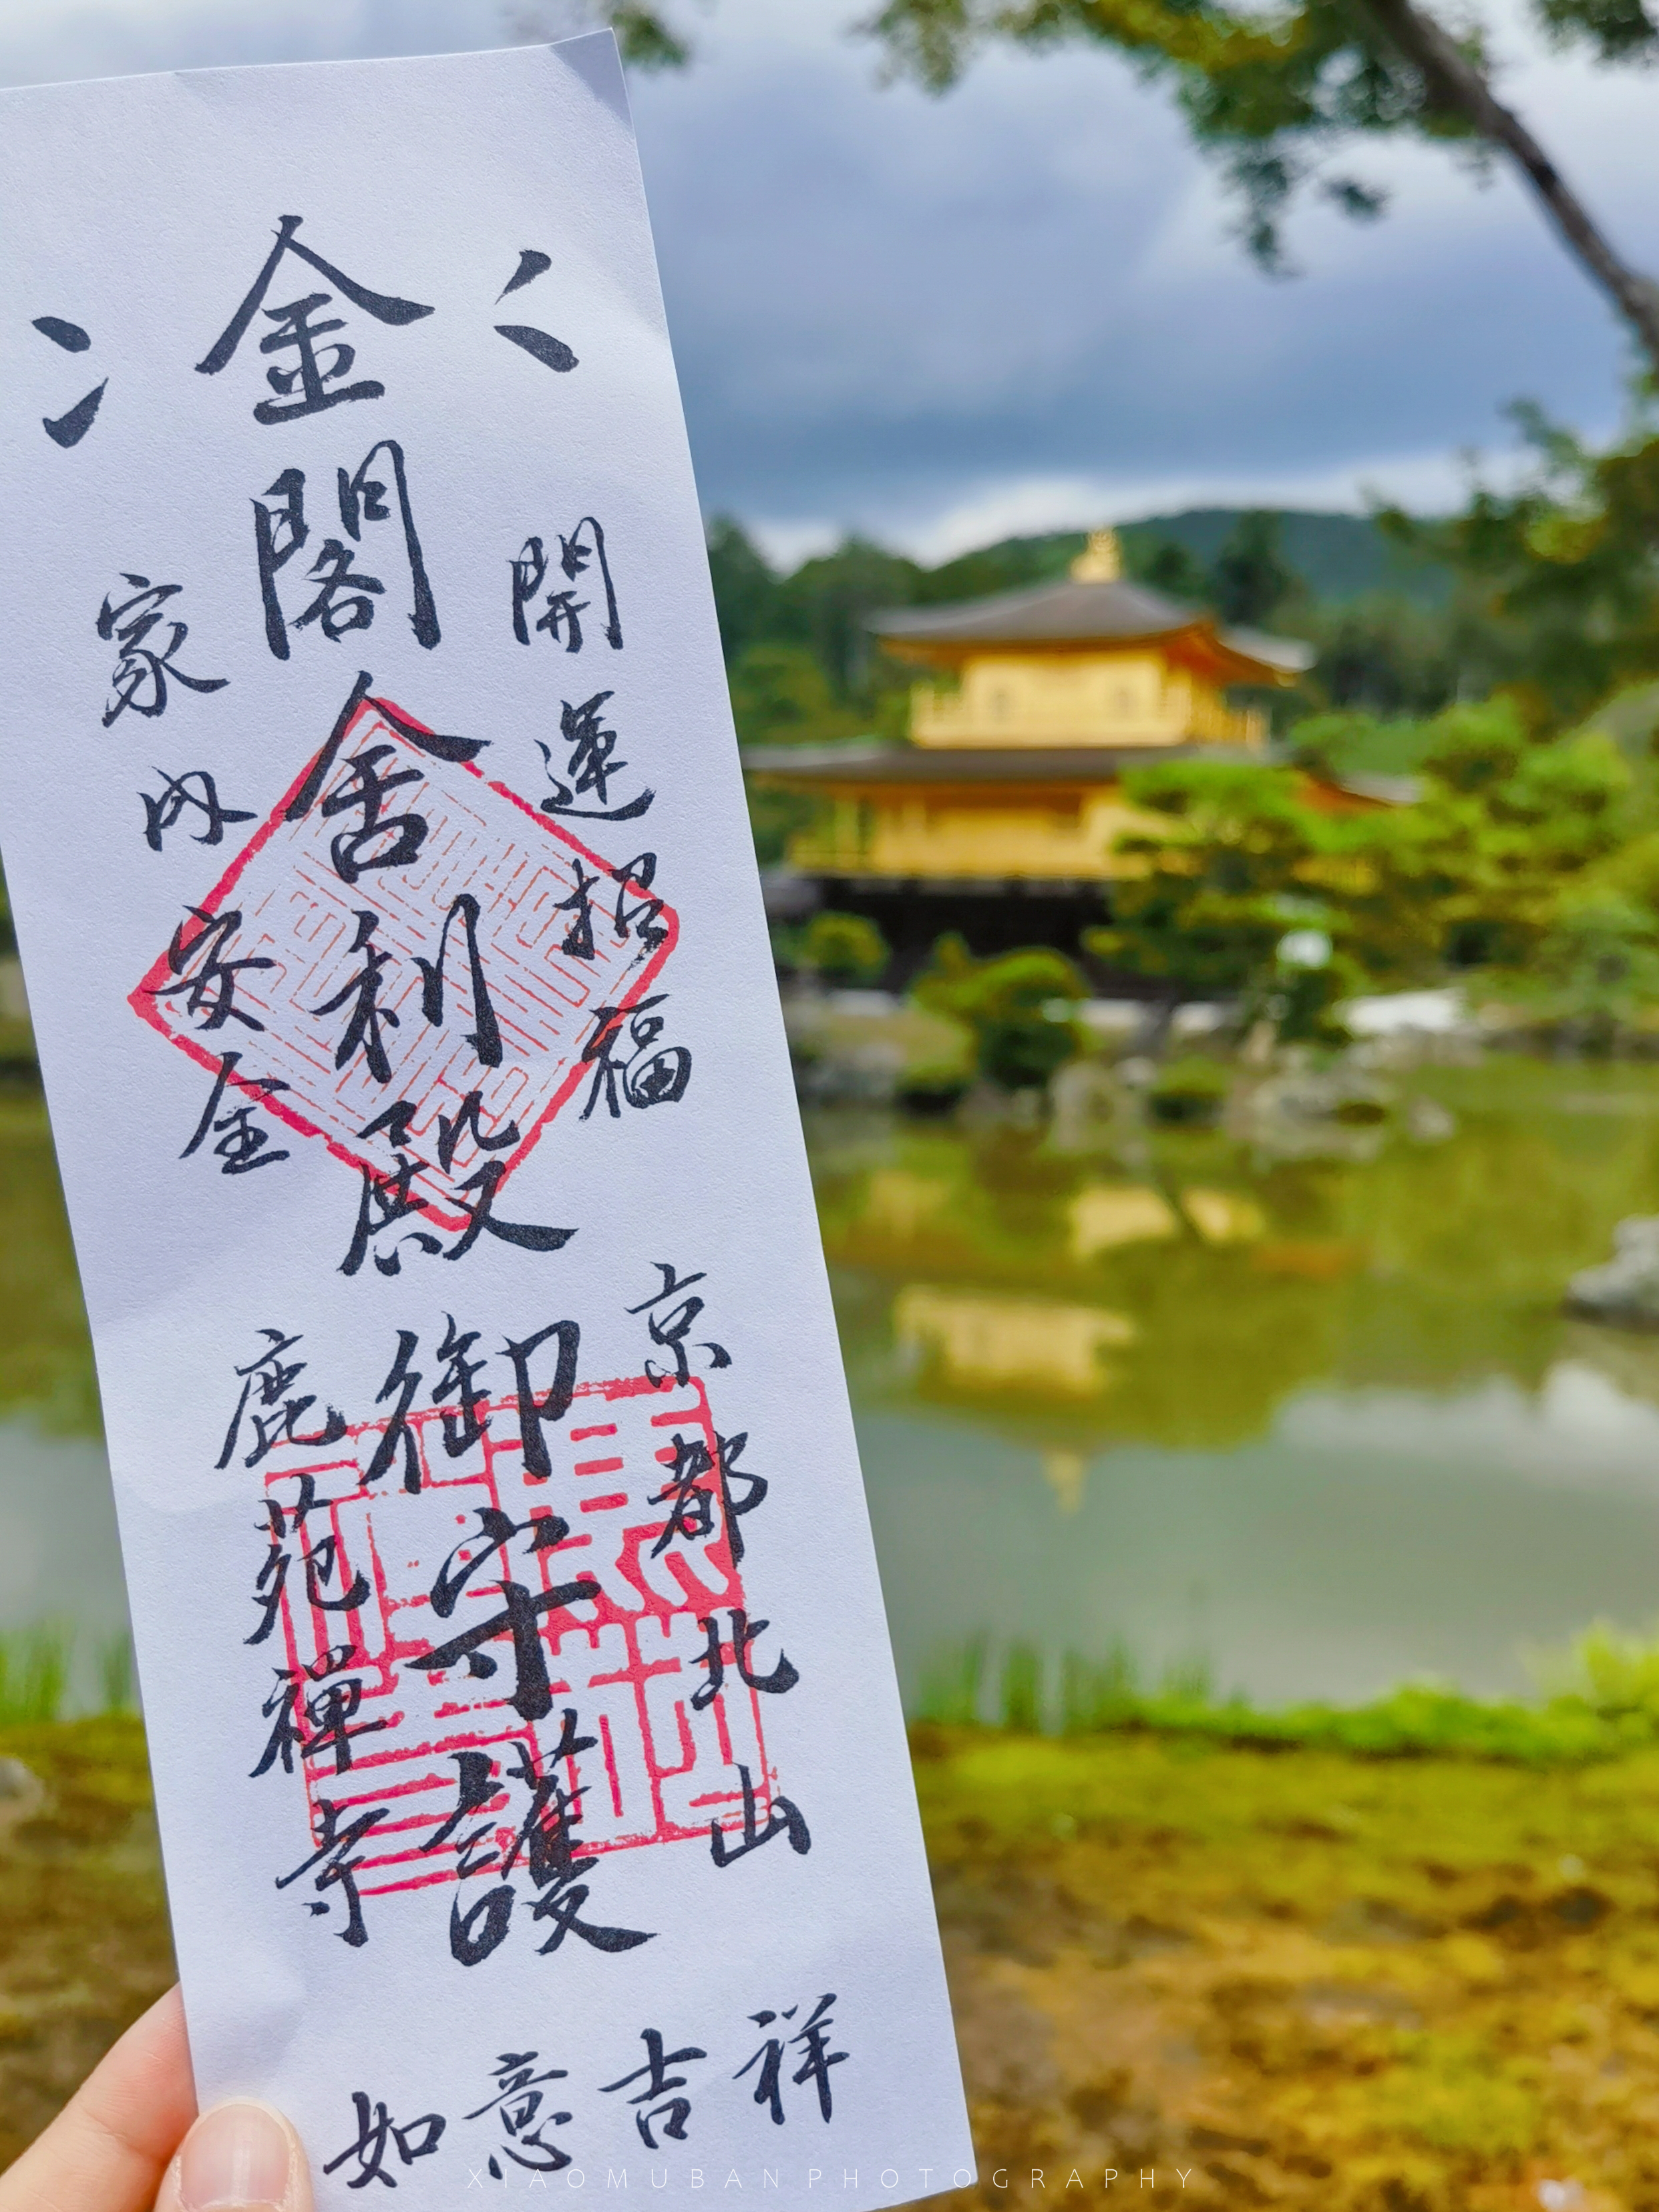 開運招福
京都北山
金閣舎利殿
御守護
家内安全
鹿苑禅寺
祥吉意如
XIAOMUBAN PHOTOGRAPHY